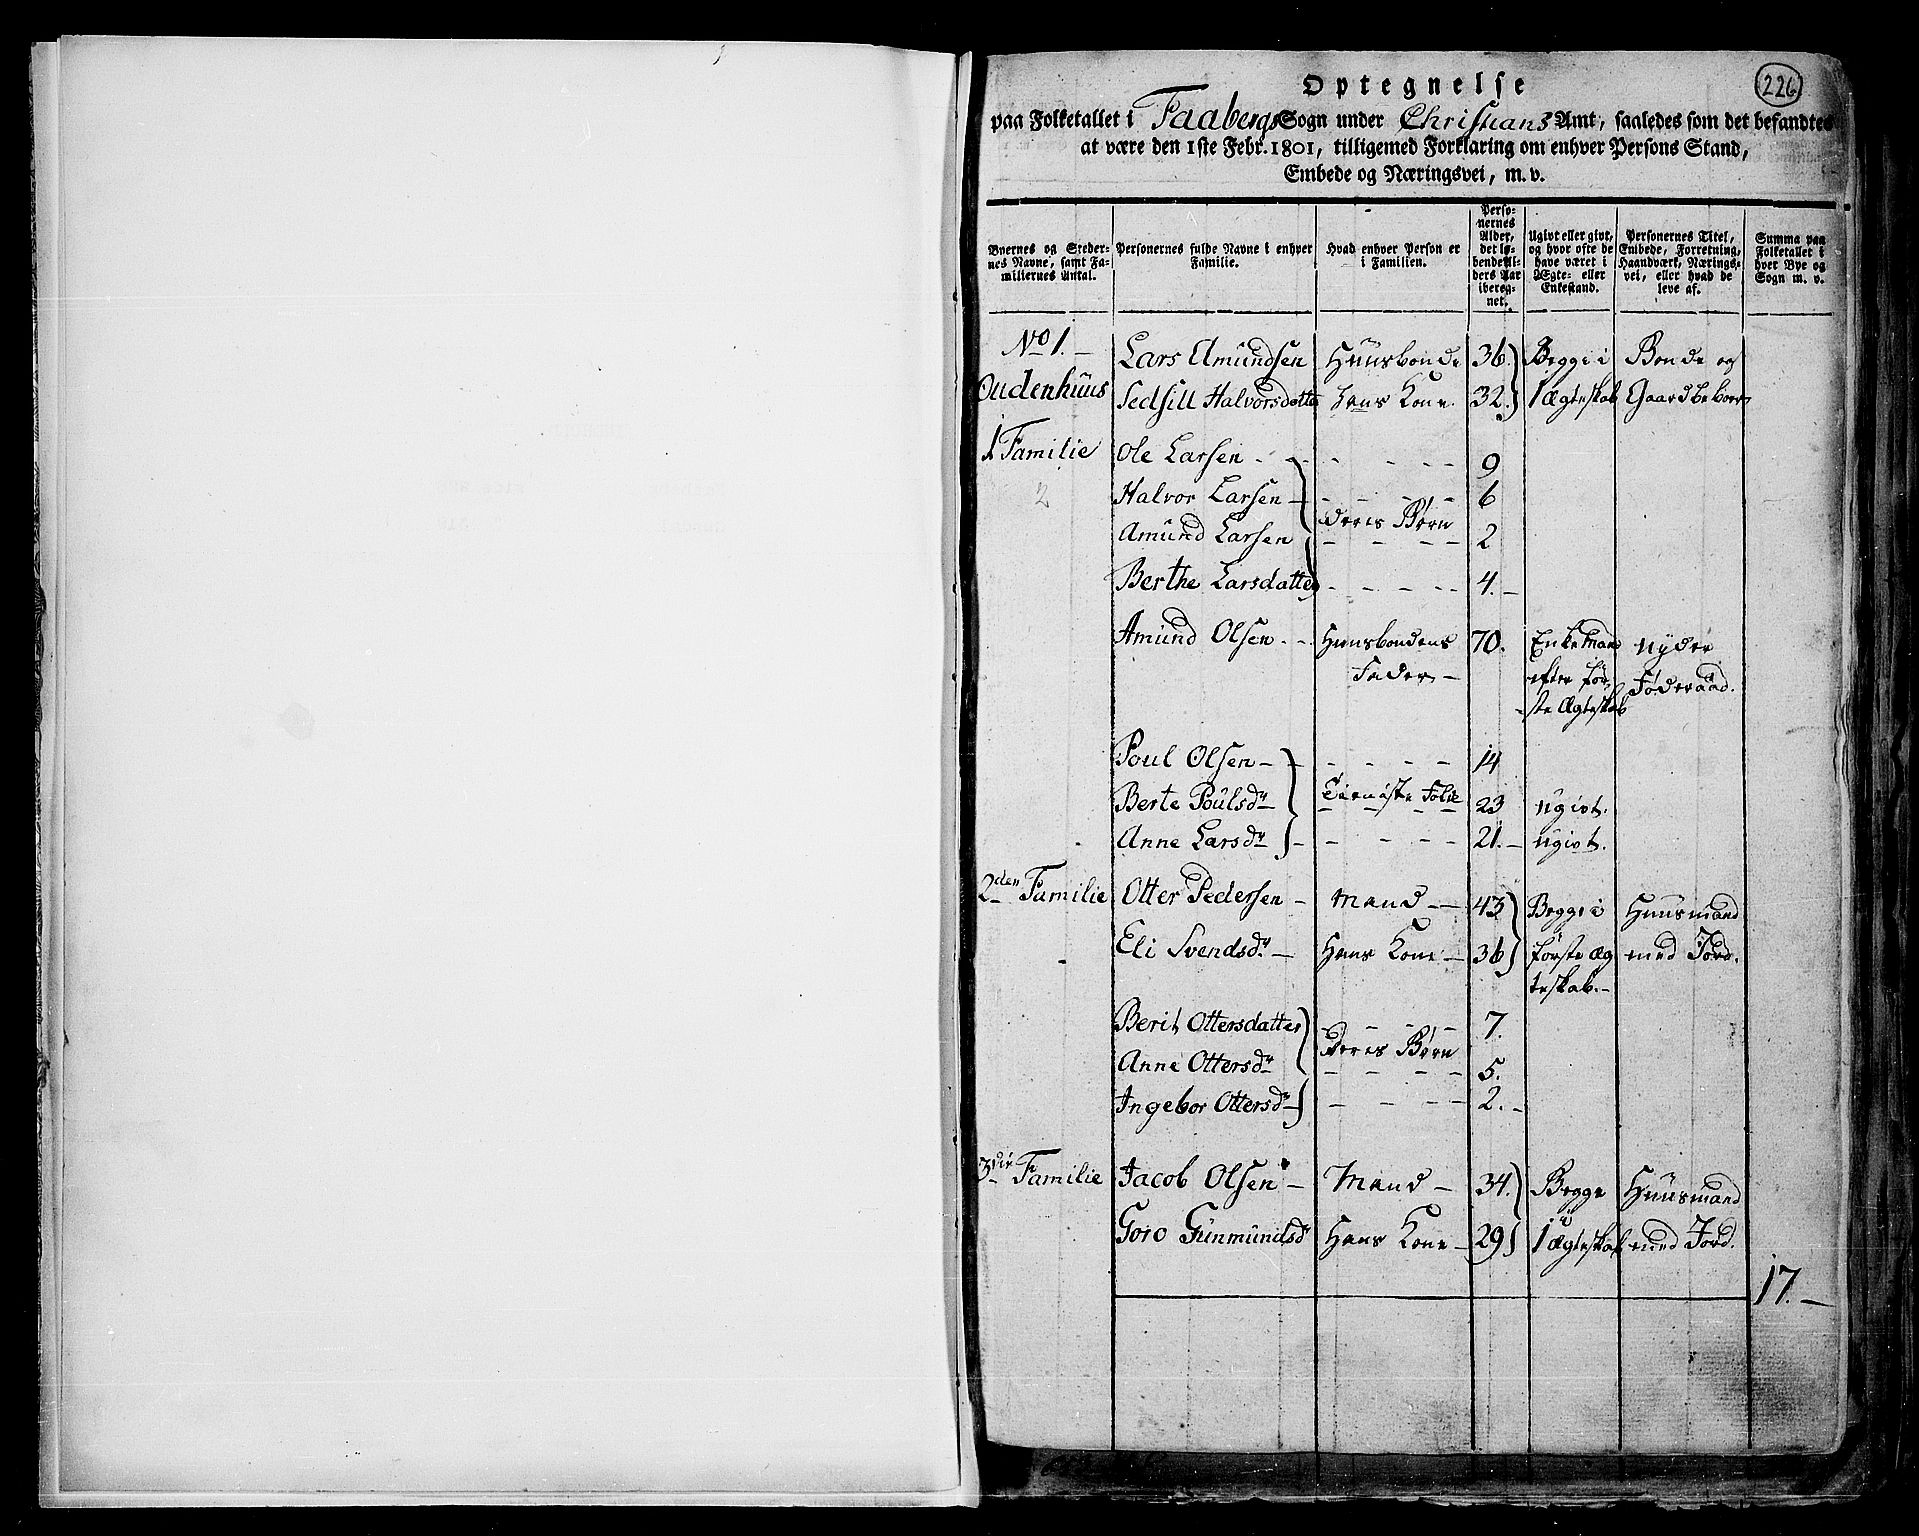 226
Optegnelse
paa Folketallet i Faabergs Sogn under Christians Amt, saaledes som det befandtes
at være den 1ste Febr. 1801, tilligemed Forklaring om enhver Persons Stand,
Embede og Næringsvei, m. v.
Byernes og Steder-
nes Navne, samt Fa-
miliernes Antal.
Personernes fulde Navne i enhver
Familie.
Hvad enhver Person er
i Familien.
Perso-
nernes
Alder,
det lø-
bende Al-
ders Aar
ibereg-
net.
Ugivt eller givt,
og hvor ofte de
have været i
Ægte- eller
Enkestand.
Personernes Titel,
Embede, Forretning,
Haandværk, Nærings-
vei, eller hvad de
leve af.
Summa paa
Folketallet i
hver Bye og
Sogn m. v.
No 1. Lars Amundsen Huusbonde 36 Begge i Bonde og
Oudenhuus Sedsill Halvorsdatter Hans Kone 32. 1 Ægteskab Gaardbeboer
1 Familie Ole Larsen - - - - - - 9
2 Halvor Larsen - - - - - 6
Deres Børn
Amund Larsen - - - - 2
Berthe Larsdatter - - - - - 4. -
Amund Olsen - - Huusbondens 70. Enkemand nyder
Fader - efter før- Føderaad.
ste Ægteskab
Poul Olsen - - - - - - - 14
Berte Poulsdr Tieniste Folk 23 ugivt.
Anne Larsdr - - - - - 21. - ugivt.
2den Familie Otter Pedersen - Mand - 43 Begge i Huusmand
Eli Svendsdr - Hans Kone - 36 første Æg med Jord.
teskab. -
Berit Ottersdatter - - - - 7.
Deres Børn
Anne Ottersdr - - - - 5.
Ingebor Ottersdr - - - - - 2. -
3die Familie Jacob Olsen - Mand - 34. Begge Huusmand
i
Goro Gunmundsdr Hans Kone - 29 1 Ægteskab med Jord.
17. -